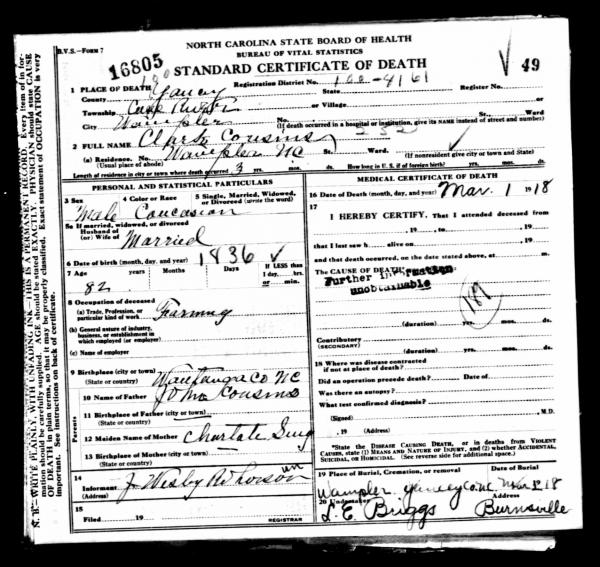 NORTH CAROLINA STATE BOARD OF HEALTH
BUREAU OF VITAL STATISTICS
B.V.S.—FORM 7
16805
STANDARD CERTIFICATE OF DEATH
49
1 PLACE OF DEATH
Registration District No. 100-4161
Register No.
County Yancey
State
Township
or Village
City Wampler
No.
St.
Ward
(If death occurred in a hospital or institution, give its NAME instead of street and number)
2 FULL NAME Clark Cousins
(a) Residence. No. Wampler NC
St.
Ward
(Usual place of abode)
(If nonresident give city or town and State)
Length of residence in city or town where death occurred 3 yrs. mos. ds.
How long in U.S. if of foreign birth? yrs. mos. ds.
PERSONAL AND STATISTICAL PARTICULARS
3 Sex
4 Color or Race
5 Single, Married, Widowed, or Divorced (write the word)
Male Caucasian
5a If married, widowed, or divorced
Husband of
(or) Wife of
Married
6 Date of birth (month, day, and year) 1836
7 Age years Months Days If LESS than
1 day, hrs.
or min.
82
8 Occupation of deceased
(a) Trade, Profession, or
particular kind of work Farming
(b) General nature of industry,
business, or establishment in
which employed (or employer)
(c) Name of employer
9 Birthplace (city or town) NC
(State or country)
10 Name of Father John Cousins
11 Birthplace of Father (city or town)
(State or country)
12 Maiden Name of Mother
13 Birthplace of Mother (city or town)
(State or country)
14
Informant J Wesly
(Address)
15
Filed 19
REGISTRAR
MEDICAL CERTIFICATE OF DEATH
16 Date of Death (month, day, and year) Mar. 1 1918
17
I HEREBY CERTIFY, That I attended deceased from
, 19 , to , 19
that I last saw h alive on , 19
and that death occurred, on the date stated above, at m.
The CAUSE OF DEATH*
Further information
unobtainable
189
(duration) yrs. mos. ds.
Contributory
(SECONDARY)
(duration) yrs. mos. ds.
18 Where was disease contracted
if not at place of death?
Did an operation precede death? Date of
Was there an autopsy?
What test confirmed diagnosis?
(Signed) , M.D.
, 19 (Address)
*State the DISEASE CAUSING DEATH, or in deaths from VIOLENT
CAUSES, state (1) MEANS AND NATURE OF INJURY, and (2) whether ACCIDENTAL,
SUICIDAL, or HOMICIDAL. (See reverse side for additional space.)
19 Place of Burial, Cremation, or removal
Date of Burial
Wampler Yancey Co NC Mar 18
20 Undertaker
Address
L.E. Briggs Burnsville
N. B.—WRITE PLAINLY, WITH UNFADING INK—THIS IS A PERMANENT RECORD. Every item of infor-
mation should be carefully supplied. AGE should be stated EXACTLY. PHYSICIAN should state CAUSE
OF DEATH in plain terms, so that it may be properly classified. Exact statement of OCCUPATION is very
important. See instructions on back of certificate.